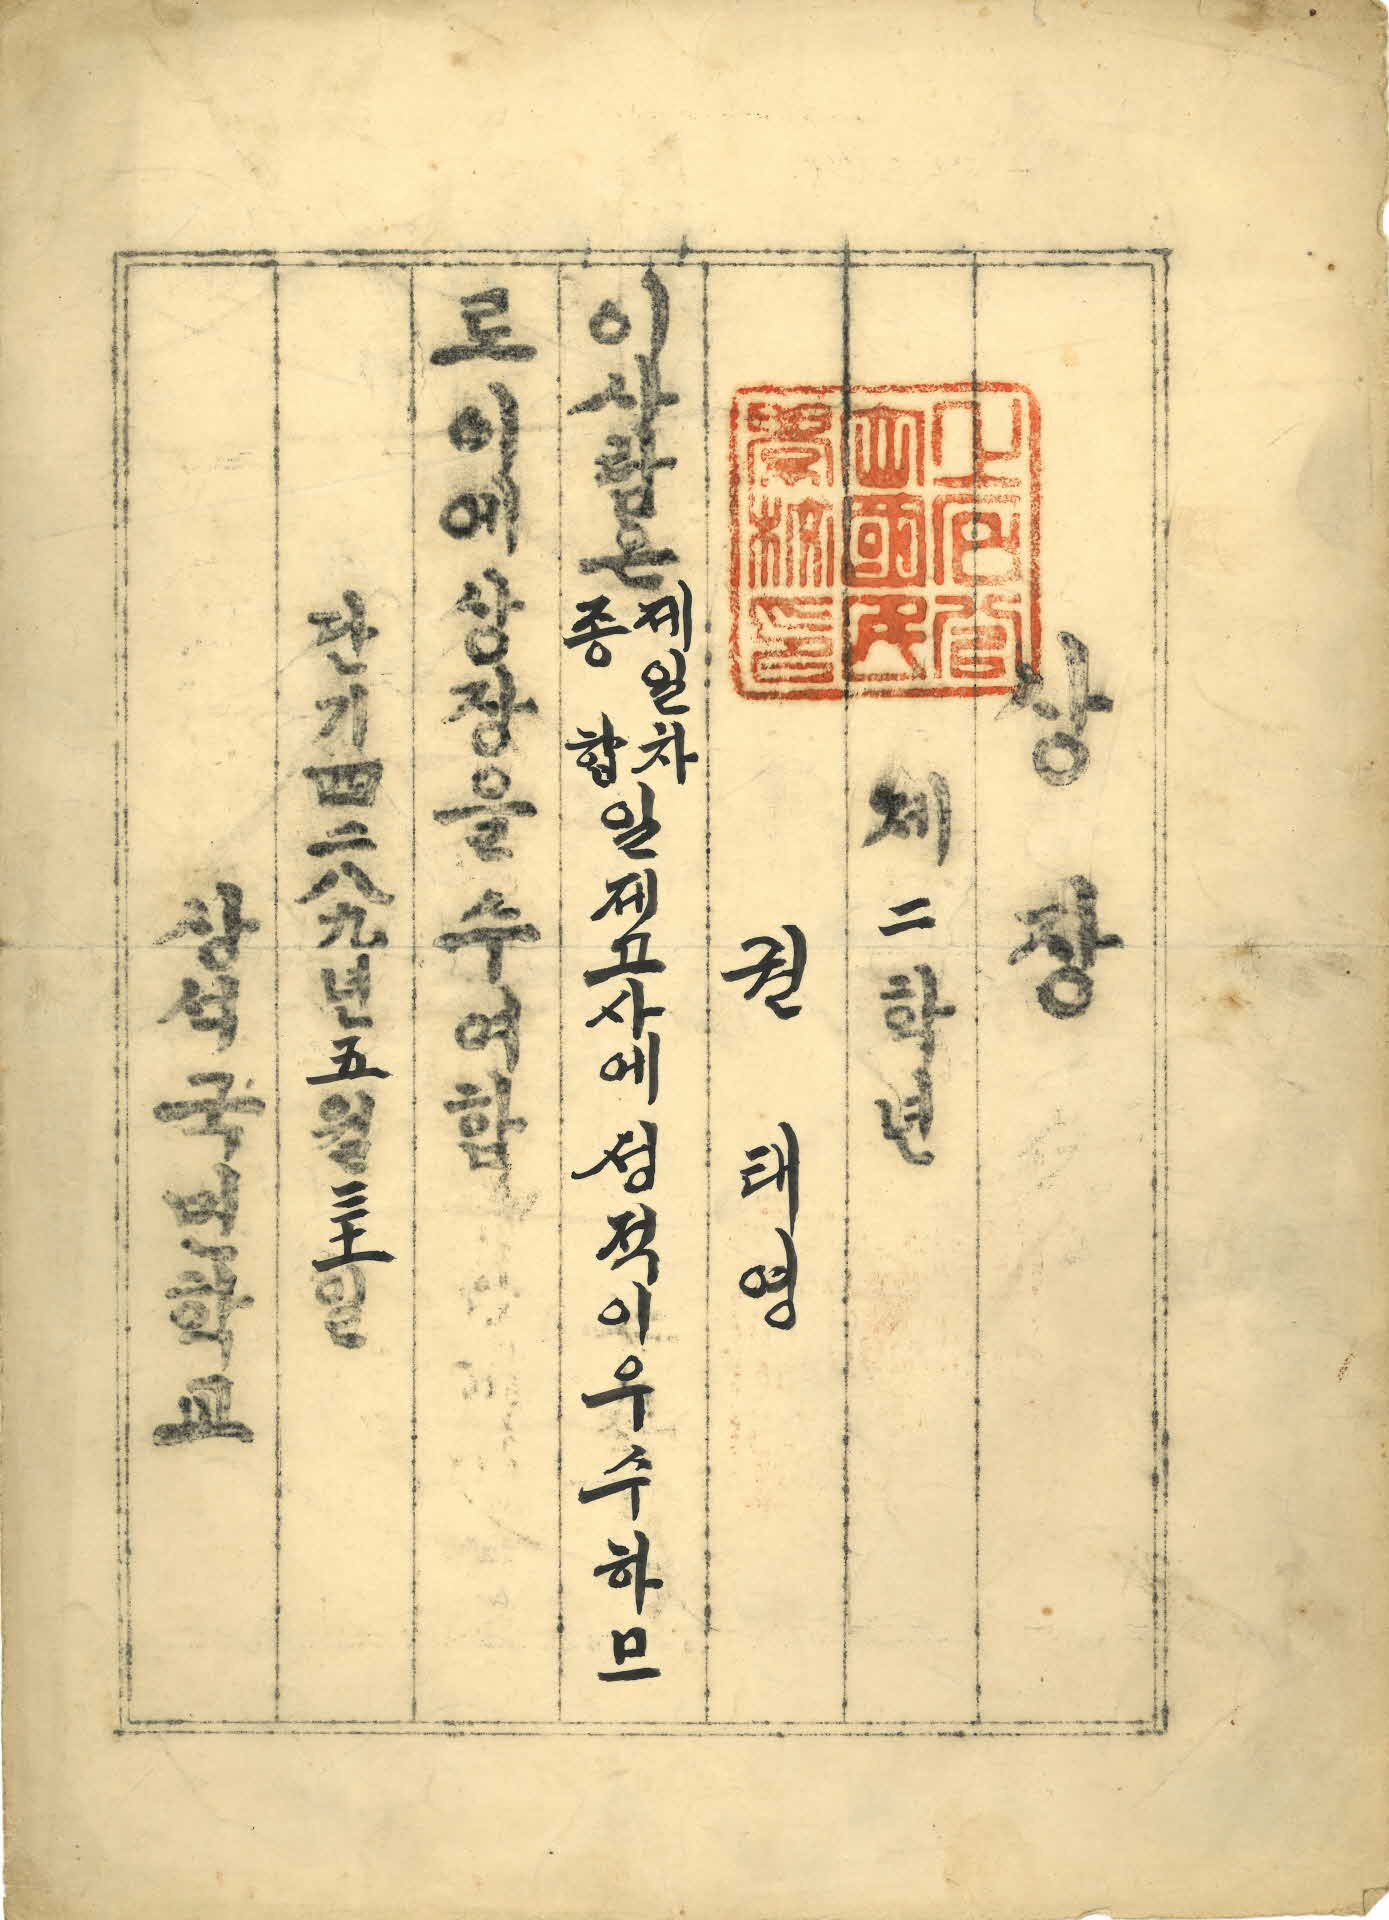 상 장
上石
山國民
學校印
제二학년
권 태영
이사람은 제일차 종합 일제고사에 성적이우수하므
로이에상장을수여함
단기四二八九년五월三十一일
상석국민학교